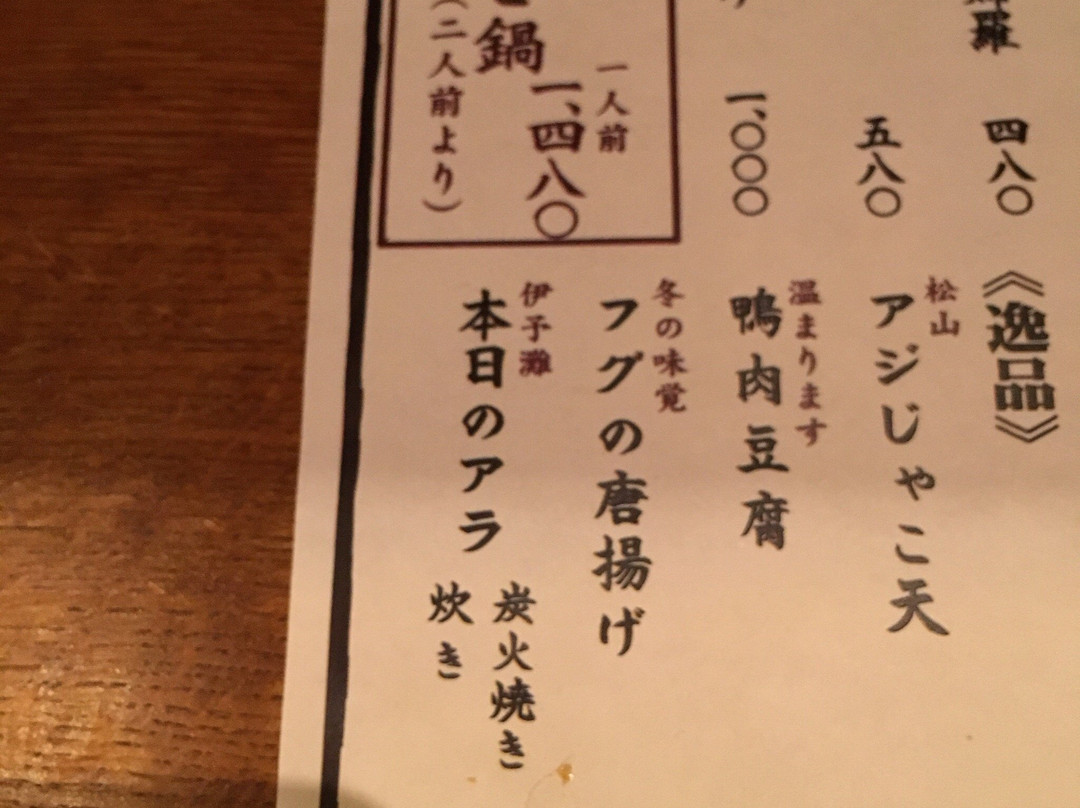 羅
四八〇
五八〇
一、〇〇〇
一人前
一、四八〇
鍋
(二人前より)
《逸品》
松山
アジじゃこ天
温まります
鴨肉豆腐
冬の味覚
フグの唐揚げ
伊予灘
本日のアラ
炭火焼き
炊き